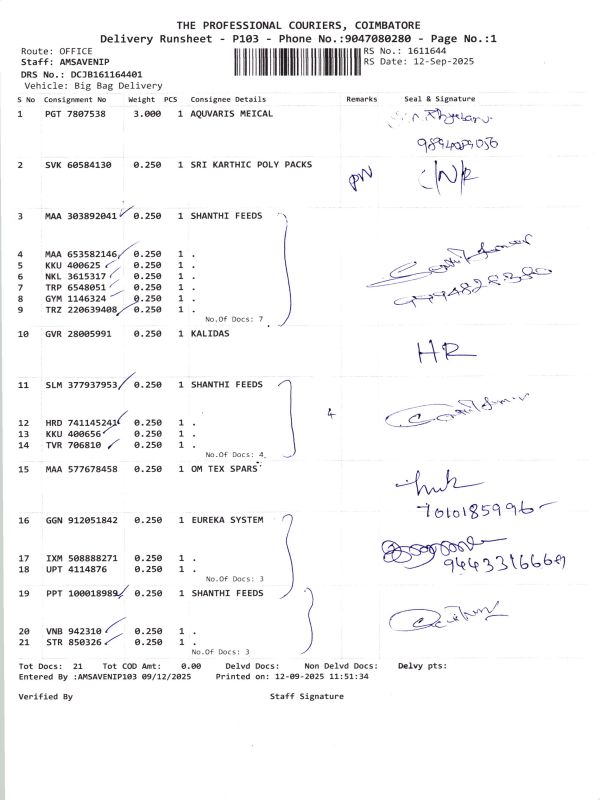 THE PROFESSIONAL COURIERS, COIMBATORE
Delivery Runsheet - P103 - Phone No.:9047080280 - Page No.:1
Route: OFFICE RS No.: 1611644
Staff: AMSAVENIP RS Date: 12-Sep-2025
DRS No.: DCJB161164401
Vehicle: Big Bag Delivery
S No Consignment No Weight PCS Consignee Details Remarks Seal & Signature
1 PGT 7807538 3.000 1 AQUVARIS MEICAL
2 SVK 60584130 0.250 1 SRI KARTHIC POLY PACKS
3 MAA 303892041 0.250 1 SHANTHI FEEDS
4 MAA 653582146 0.250 1 .
5 KKU 400625 0.250 1 .
6 NKL 3615317 0.250 1 .
7 TRP 6548051 0.250 1 .
8 GYM 1146324 0.250 1 .
9 TRZ 220639408 0.250 1 .
No.Of Docs: 7
10 GVR 28005991 0.250 1 KALIDAS HR
11 SLM 377937953 0.250 1 SHANTHI FEEDS
4
12 HRD 741145241 0.250 1 .
13 KKU 400656 0.250 1 .
14 TVR 706810 0.250 1 .
No.Of Docs: 4
15 MAA 577678458 0.250 1 OM TEX SPARS
7010185996
16 GGN 912051842 0.250 1 EUREKA SYSTEM
17 IXM 508888271 0.250 1 .
18 UPT 4114876 0.250 1 .
9443316669
No.Of Docs: 3
19 PPT 100018989 0.250 1 SHANTHI FEEDS
20 VNB 942310 0.250 1 .
21 STR 850326 0.250 1 .
No.Of Docs: 3
Tot Docs: 21 Tot COD Amt: 0.00 Delvd Docs: Non Delvd Docs: Delvy pts:
Entered By :AMSAVENIP103 09/12/2025 Printed on: 12-09-2025 11:51:34
Verified By Staff Signature